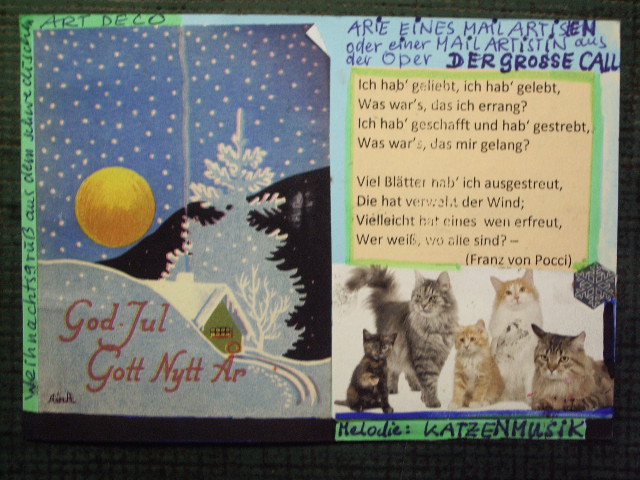 ART DECO
Weihnachtsgruß aus dem schwedischen
God Jul
Gott Nytt År
ARIE EINES MAIL ARTISTEN
oder einer MAIL ARTISTIN aus
der Oper DER GROSSE CALL
Ich hab' geliebt, ich hab' gelebt,
Was war's, das ich errang?
Ich hab' geschafft und hab' gestrebt,
Was war's, das mir gelang?
Viel Blätter hab' ich ausgestreut,
Die hat verweht der Wind;
Vielleicht hat eines wen erfreut,
Wer weiß, wo alle sind? –
(Franz von Pocci)
Melodie: KATZENMUSIK